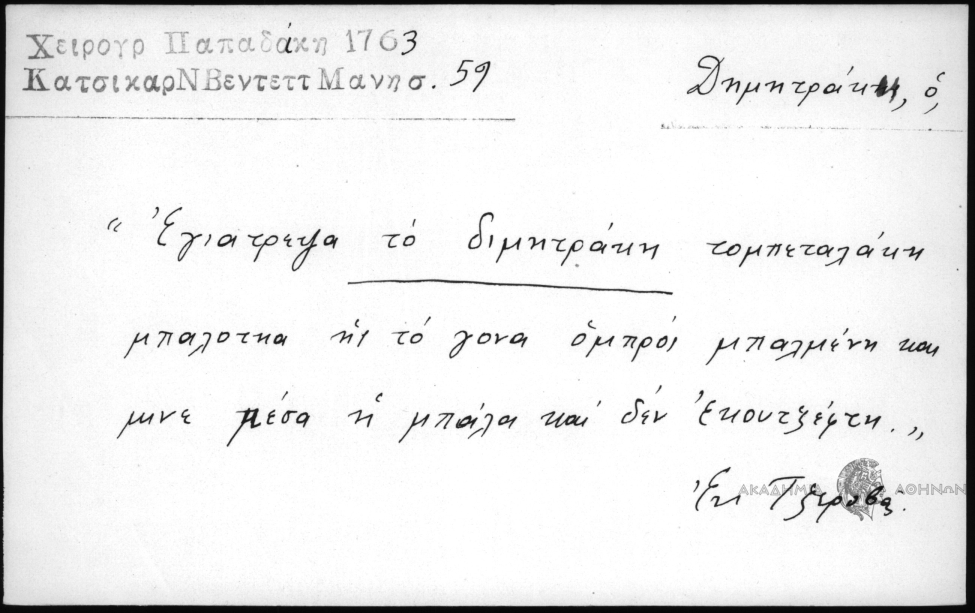 Χειρογρ Παπαδάκη 1763
ΚατσικαρΝ Βεντεττ Μανησ. 59
Δημητράκη, ὁ,
"Ἐγιατρεψα τό διμητράκη τομπεταλάκη
μπαλοτκα ἠς τό γονα ὀμπρός μπαλμένη και
μινε μέσα ἡ μπάλα καί δέν ἐκουτζέφτη."
ΑΚΑΔΗΜΙΑ ΑΘΗΝΩΝ